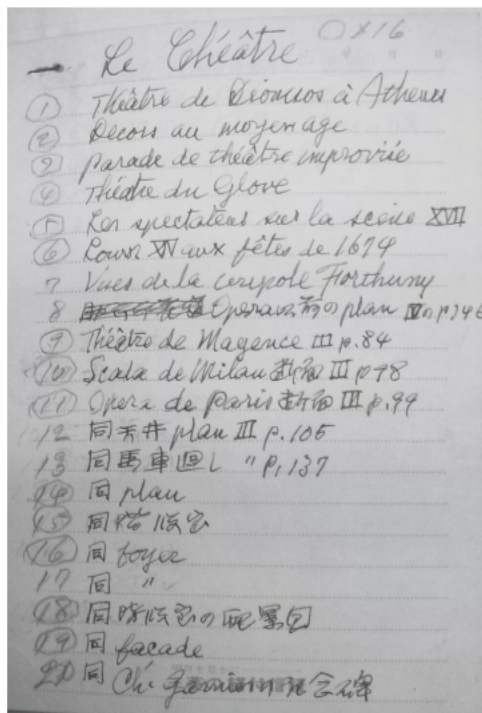 O X 16
— Le Théâtre
① Théâtre de Dionusos à Athenes
② Decors au moyen age
③ parade de théâtre improvisée
④ Théatre du Glove
⑤ Les spectateurs sur la scène XVII
⑥ Louis XIV aux fêtes de 1674
7 Vues de la coupole Forthuny
8 Opera の plan IV
⑨ Théâtre de Mayence III p.84
⑩ Scala de Milan 断面 III p98
⑪ Opera de Paris 断面 III p.99
12 同天井 plan III p.105
13 同馬車廻し " p.137
⑭ 同 plan
⑮ 同階段室
⑯ 同 foyer
17 同 "
⑱ 同階段室の配置図
⑲ 同 facade
20 同 Ch. Garnier 記念碑